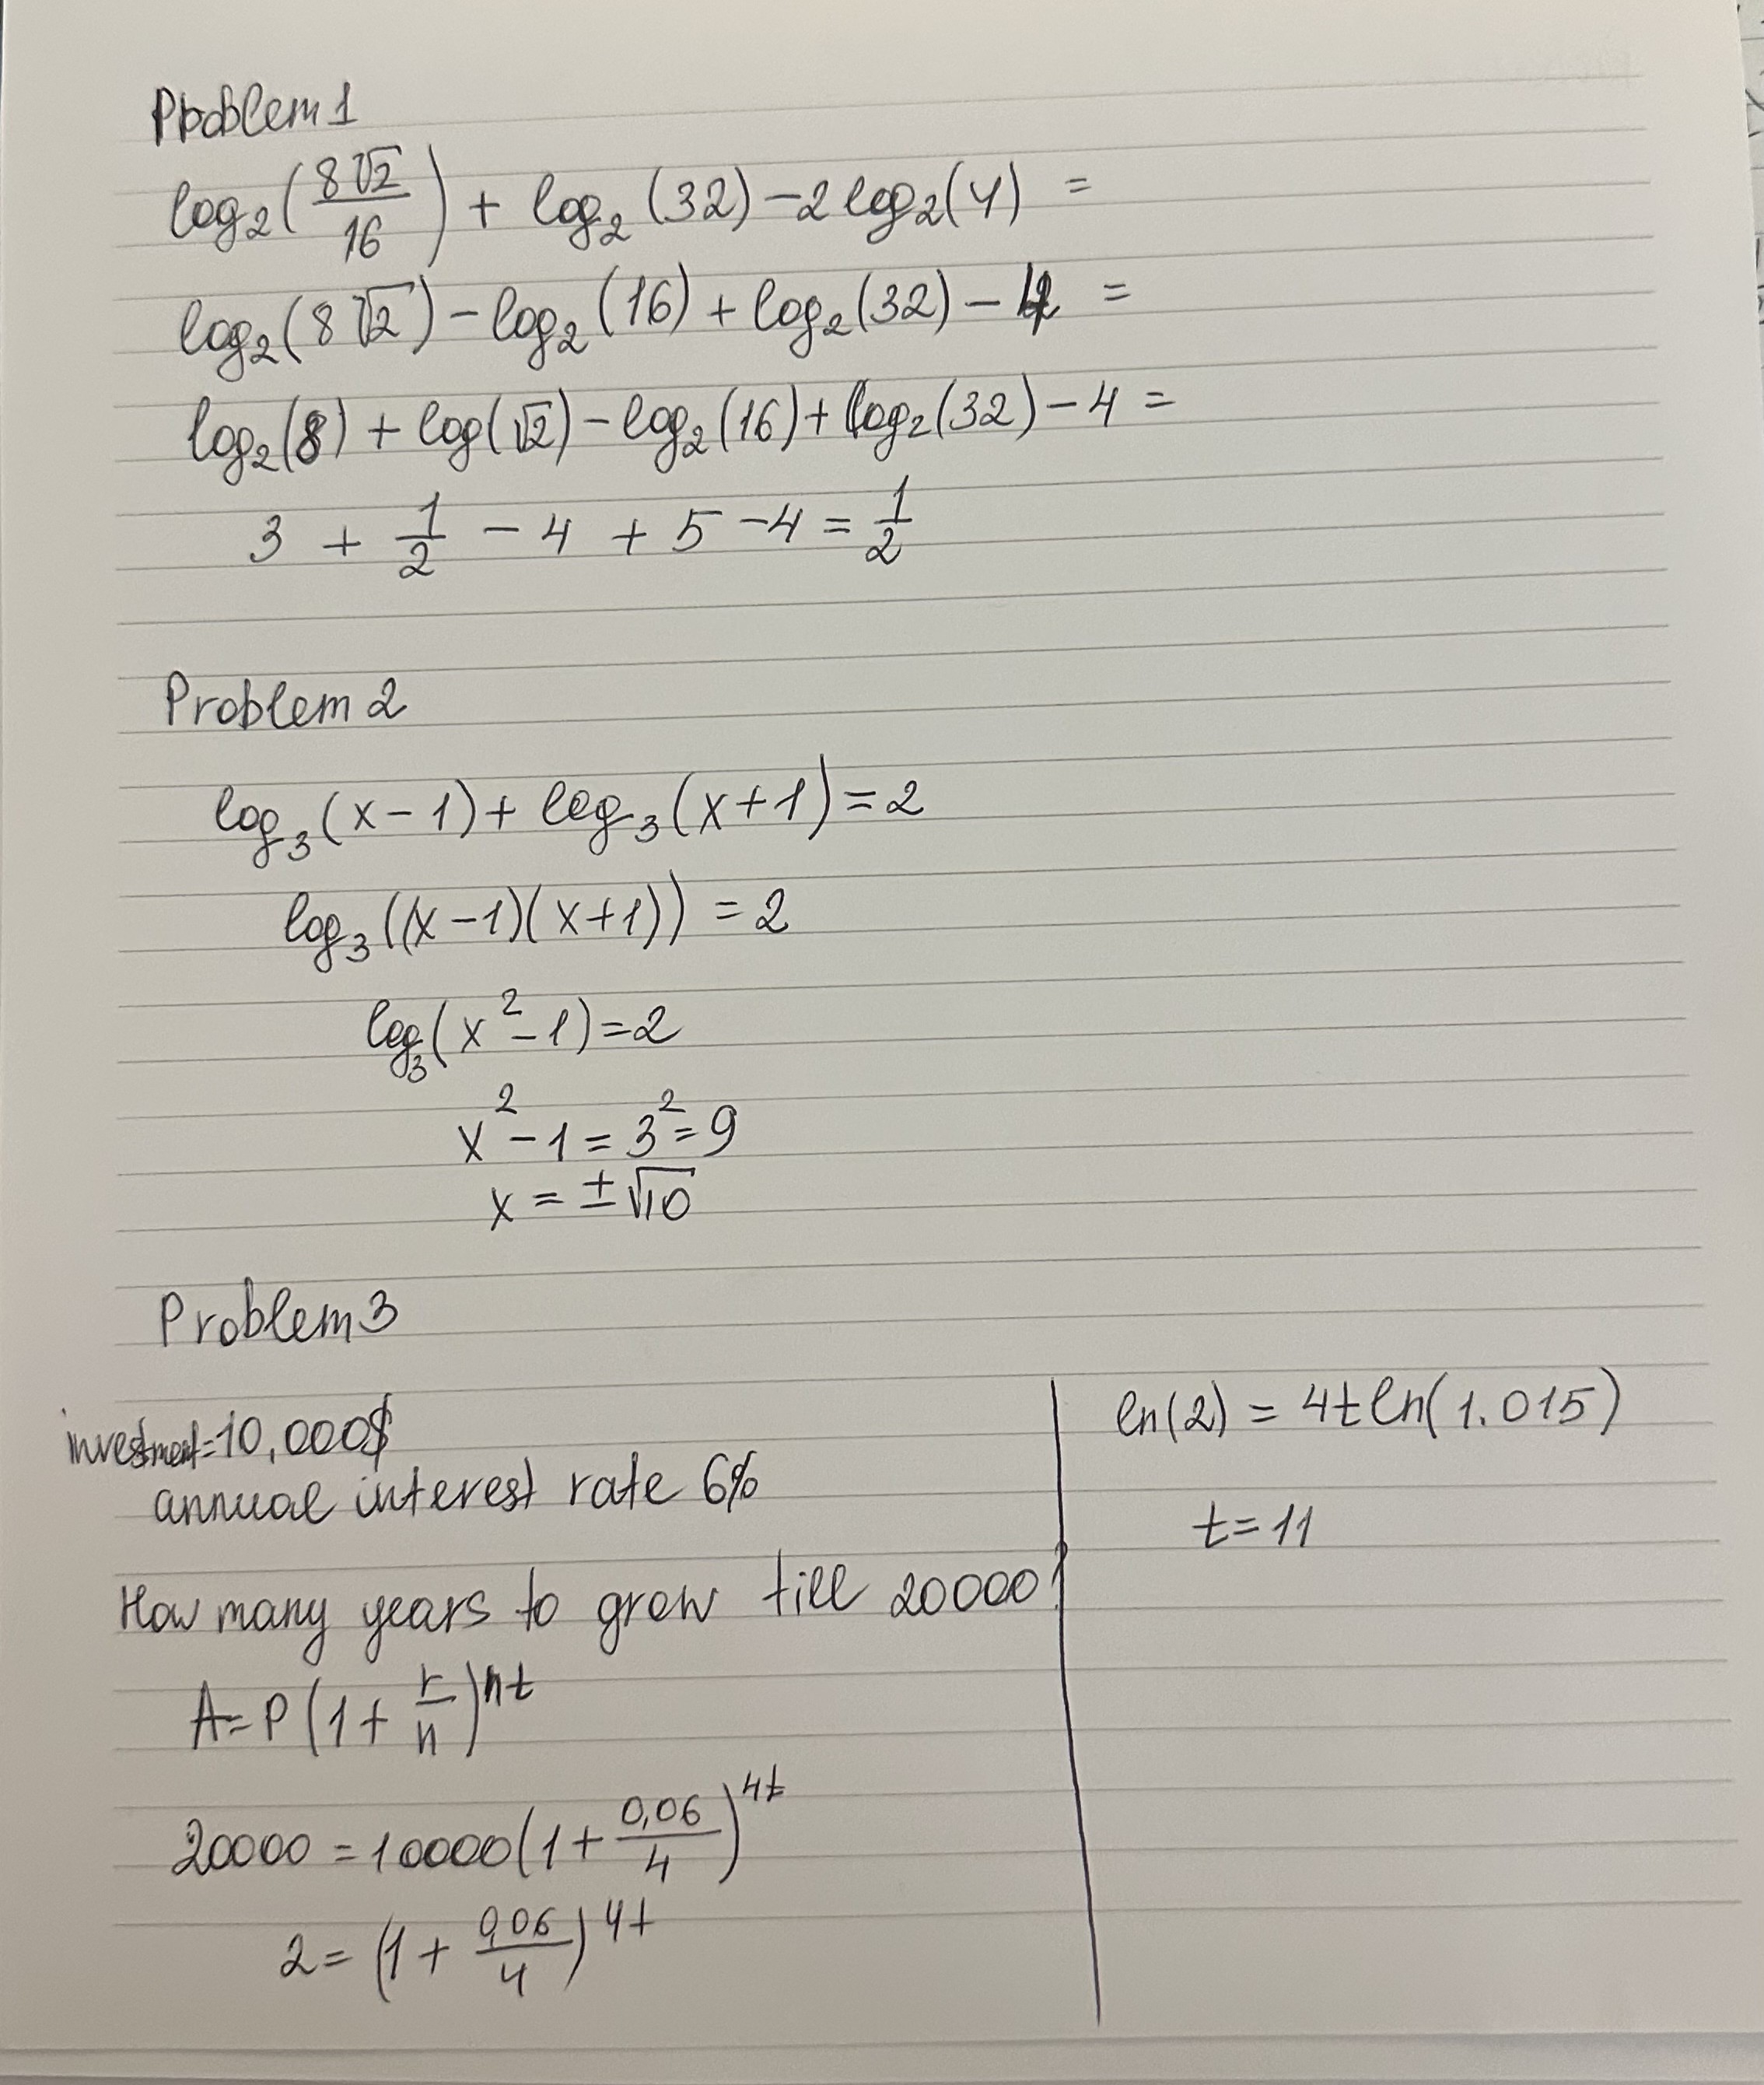 Problem 1
log₂(8√2/16) + log₂(32) - 2log₂(4) =
log₂(8√2) - log₂(16) + log₂(32) - 4 =
log₂(8) + log(√2) - log₂(16) + log₂(32) - 4 =
3 + 1/2 - 4 + 5 - 4 = 1/2
Problem 2
log₃(x-1) + log₃(x+1) = 2
log₃((x-1)(x+1)) = 2
log₃(x²-1) = 2
x² - 1 = 3² = 9
x = ±√10
Problem 3
investment = 10,000$
annual interest rate 6%
How many years to grow till 20000?
A = P(1 + r/n)^nt
20000 = 10000(1 + 0,06/4)^4t
2 = (1 + 0,06/4)^4t
ln(2) = 4t ln(1.015)
t = 11